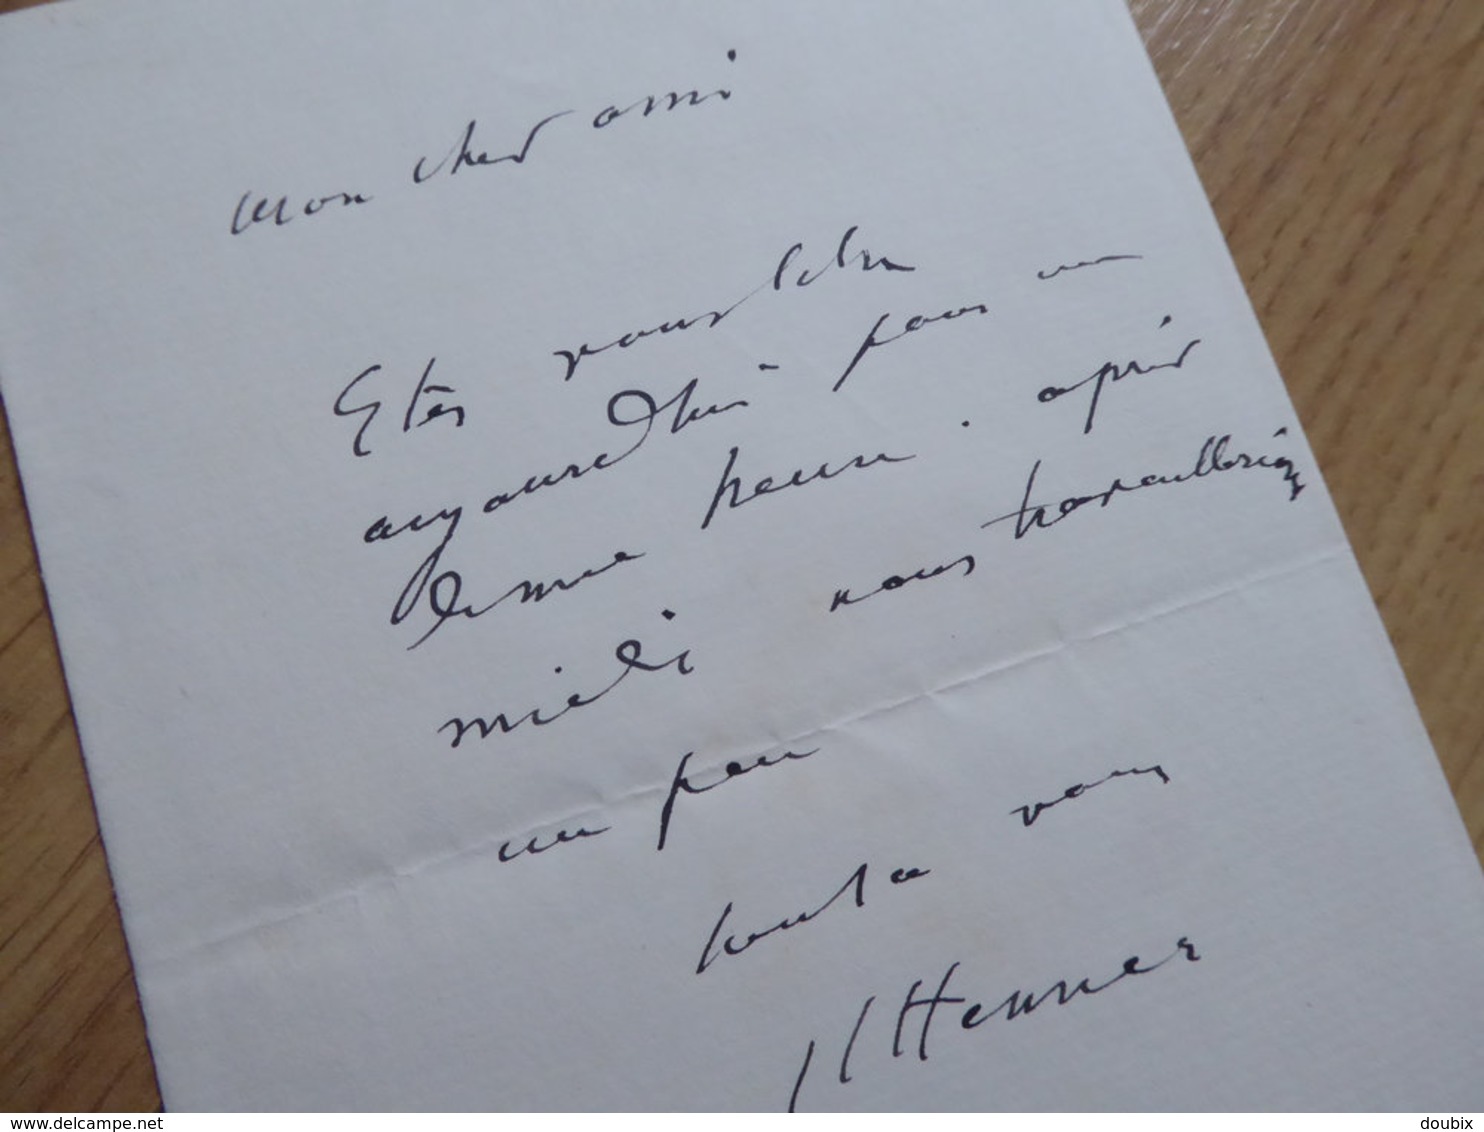 Mon cher ami
Etes vous libre
aujourd'hui pour une
demie heure. après
midi nous travaillerions
un peu
tout a vous
JJ Henner
© www.delcampe.net
doubix